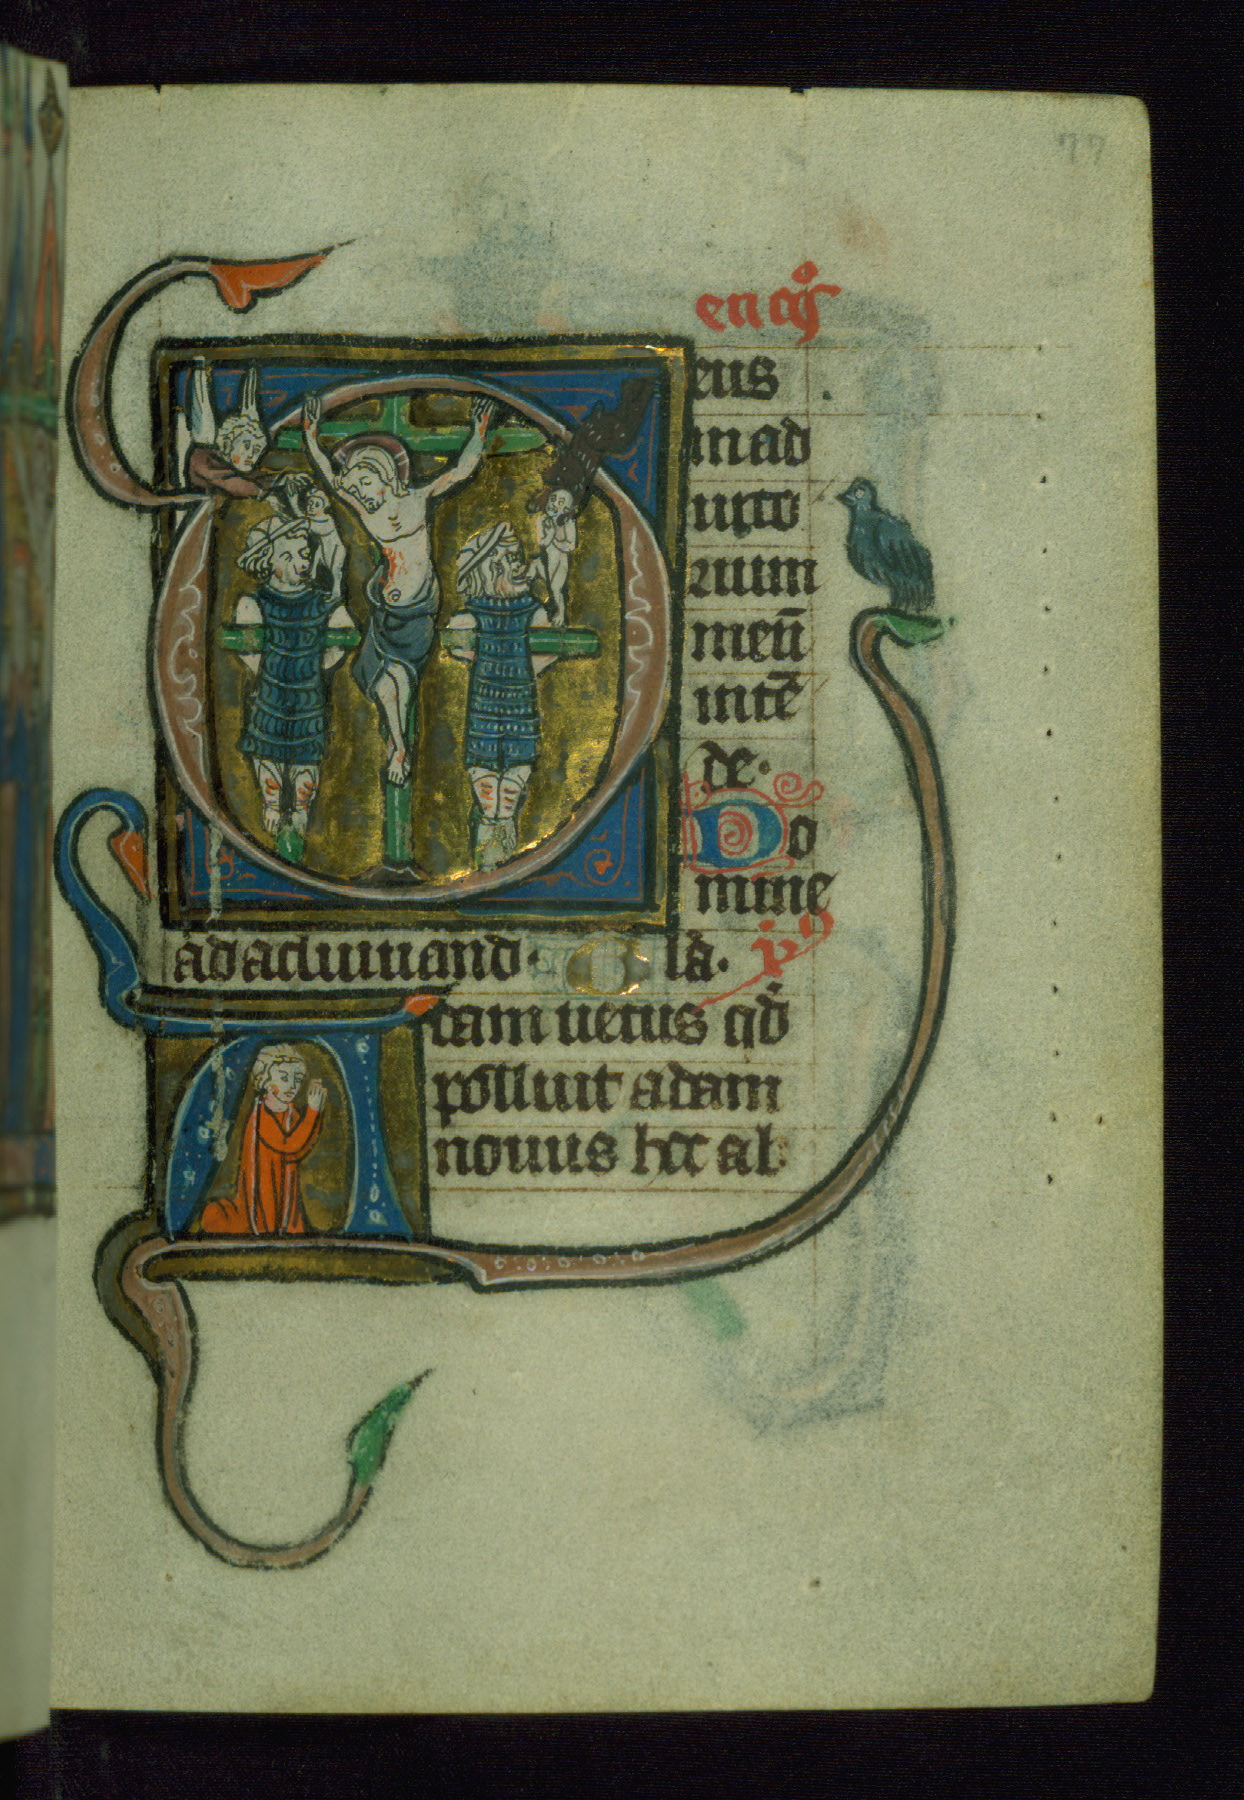 77
eus
in ad
iuto
rium
meū
intē
de.
Do
mine
ad adiuuand. G lā.
tam uetus qd̄
polluit adam
nouus hec al